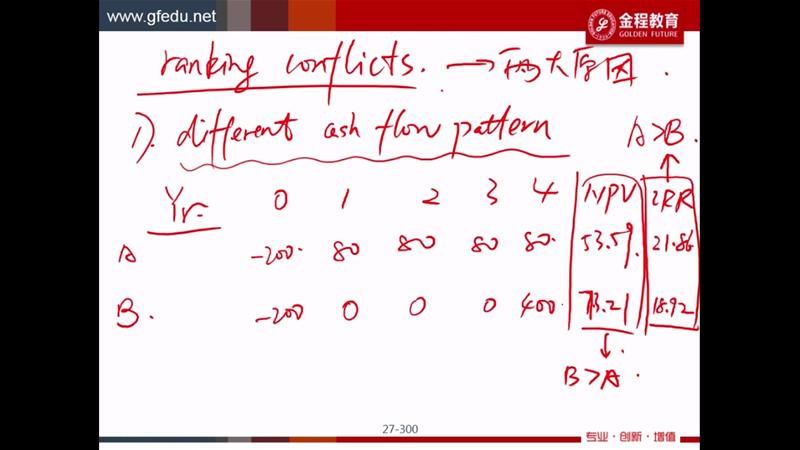 www.gfedu.net
金程教育
GOLDEN FUTURE
ranking conflicts. → 两大原因.
1). different cash flow pattern
A>B.
Yr. 0 1 2 3 4 NPV IRR
A -200. 80 80 80 80. 53.59. 21.86
B. -200 0 0 0 400. 73.21 18.92
B>A.
27-300
专业·创新·增值